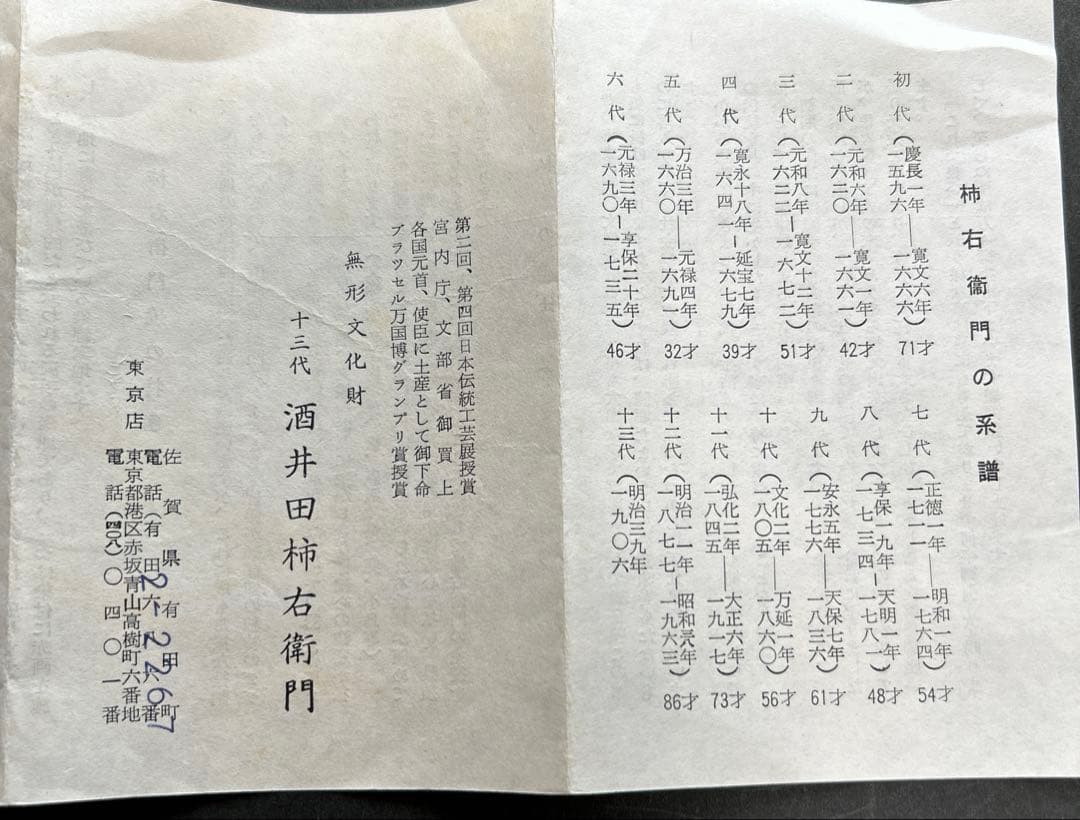 柿右衞門の系譜
初代（慶長一年――寛文六年 一五九六　一六六六）71才
二代（元和六年――寛文一年 一六二〇　一六六一）42才
三代（元和八年－寛文十二年 一六二二－一六七二）51才
四代（寛永十八年－延宝七年 一六四一－一六七九）39才
五代（万治三年――元禄四年 一六六〇　一六九一）32才
六代（元禄三年－享保二十年 一六九〇－一七三五）46才
七代（正徳一年――明和一年 一七一一　一七六四）54才
八代（享保一九年－天明一年 一七三四－一七八一）48才
九代（安永五年――天保七年 一七七六　一八三六）61才
十代（文化二年――万延一年 一八〇五　一八六〇）56才
十一代（弘化二年――大正六年 一八四五　一九一七）73才
十二代（明治一一年－昭和 年 一八七七－一九六三）86才
十三代（明治三九年 一九〇六
第二回、第四回日本伝統工芸展授賞
宮内庁、文部省御買上
各国元首、使臣に土産として御下命
ブラッセル万国博グランプリ賞授賞
無形文化財
十三代　酒井田柿右衞門
佐賀県有田町
電話（有田 番
2-2267
東京店　東京都港区赤坂青山高樹町六番地
電話（四〇八）〇四〇一番